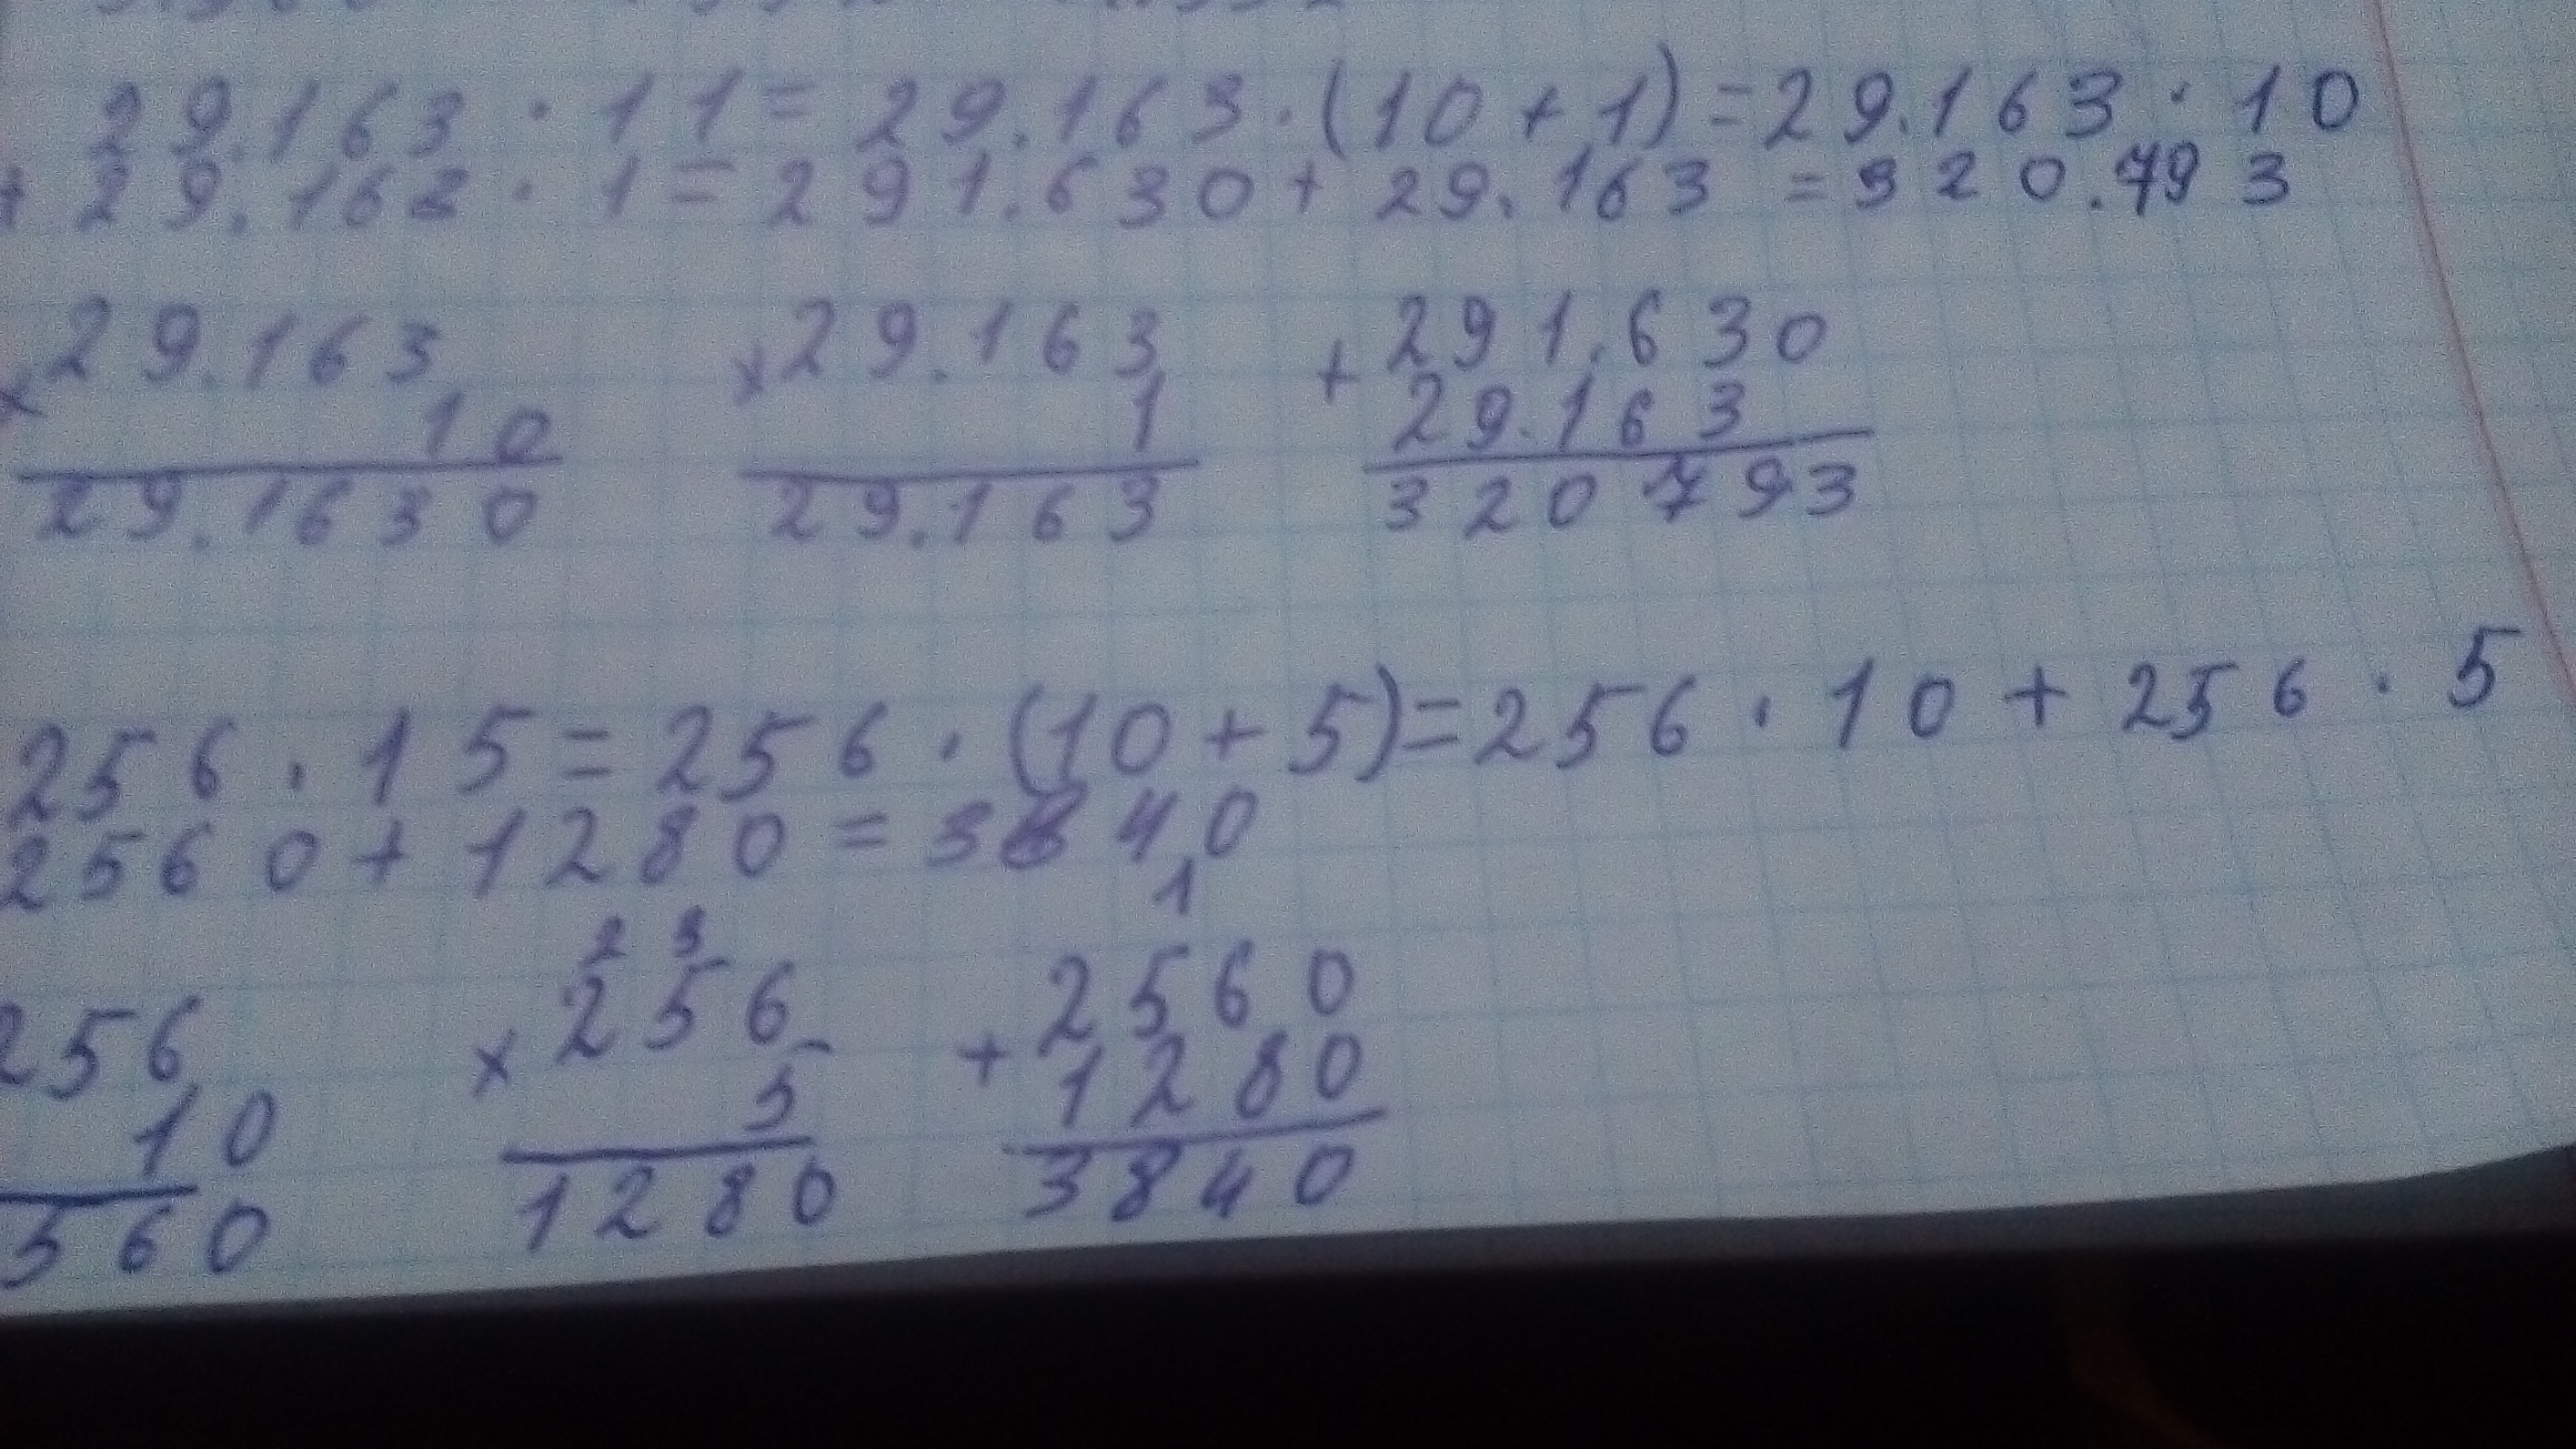 29.163 · 11 = 29.163 · (10 + 1) = 29.163 · 10
+ 29.163 · 1 = 291.630 + 29.163 = 320.793
× 29.163 × 29.163 + 291.630
10 1 29.163
29.1630 29.163 320793
256 · 15 = 256 · (10 + 5) = 256 · 10 + 256 · 5
2560 + 1280 = 3840
2 3 1
256 × 256 + 2560
10 5 1280
560 1280 3840